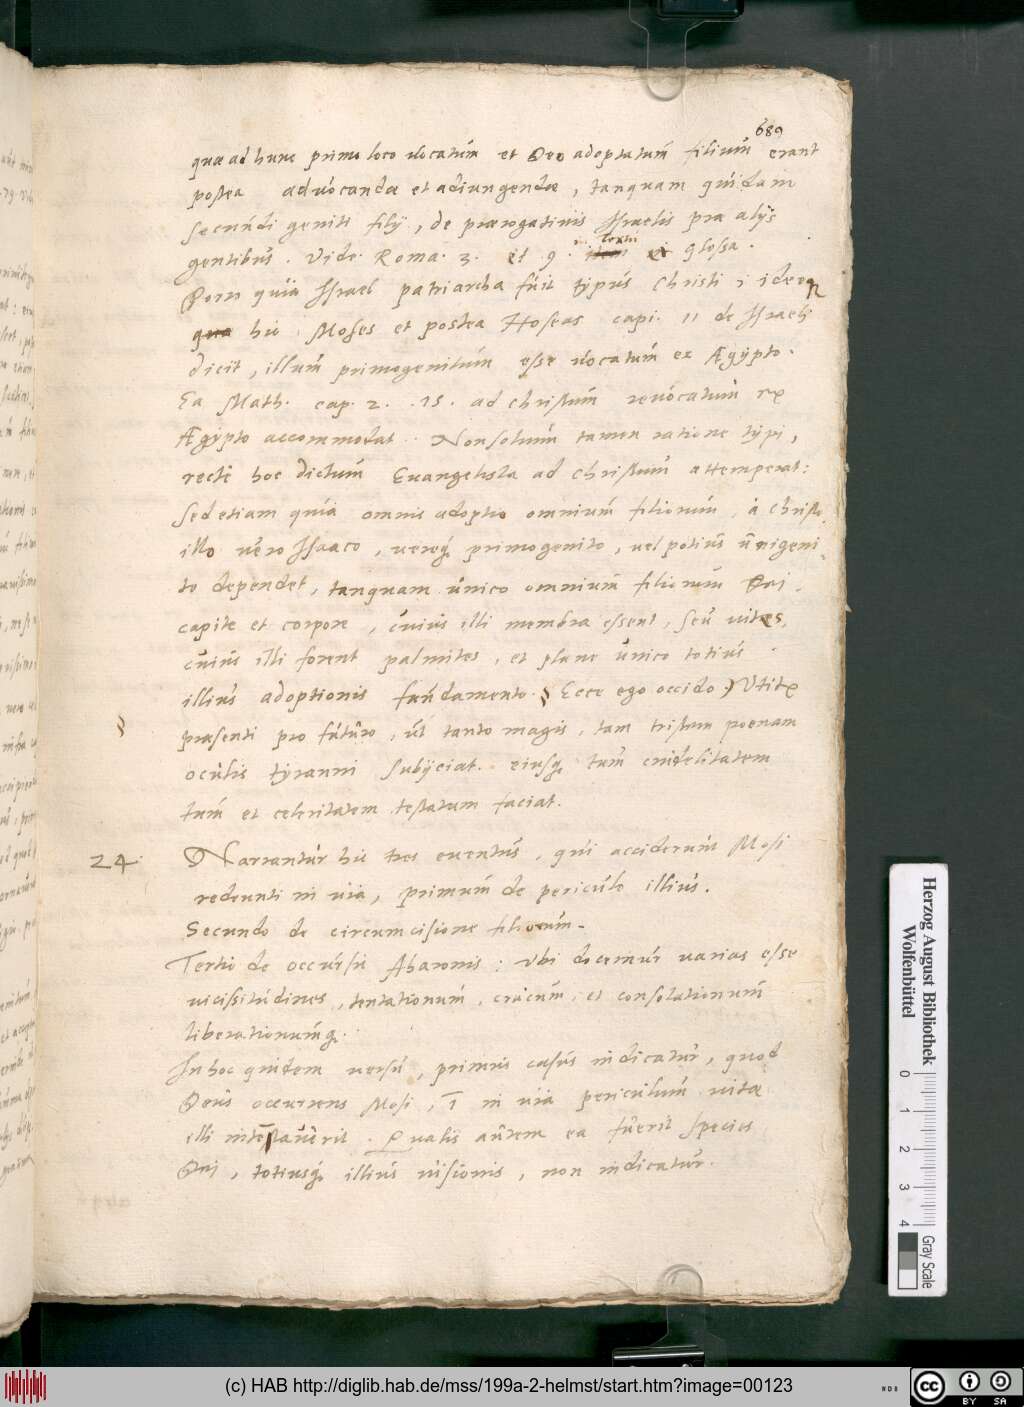 689
quae ad hunc primo loco vocatum et Deo adoptatum filium erant
postea advocandae et adiungendae, tanquam quidam
secundi geniti filij, de praerogativis Israelis prae alijs
gentibus. Vide. Roma. 3. et 9. textu et glossa.
Porro quia Israel patriarcha fuit typus Christi, ideoq
qua hic Moses et postea Hoseas capi. 11 de Israeli
dicit, illum primogenitum esse vocatum ex Ægypto.
Ea Math. cap. 2. .15. ad Christum revocatum ex
Ægypto accommodat. Non solum tamen ratione typi,
recte hoc dictum Evangelista ad Christum attemperat:
Sed etiam quia omnis adoptio omnium filiorum, à Christo
illo vero Isaaco, vereq. primogenito, vel potius unigeni
to dependet, tanquam unico omnium filiorum Dei
capite et corpore, cuius illi membra essent, seu vites,
cuius illi forent palmites, et plane unico totius
illius adoptionis fundamento. § Ecce ego occido.) Utitr
§ praesenti pro futuro, ut tanto magis, tam tristem poenam
oculis tyranni subijciat. eiusq. tum crudelitatem
tum et celeritatem testatum faciat.
24. Narrantur hic tres eventus, qui acciderunt Mosi
redeunti in via, primum de periculo illius.
Secundo de circumcisione filiorum.
Tertio de occursu Aharonis: Ubi docemur varias esse
vicissitudines, tentationum, crucum, et consolationum
liberationumq.
In hoc quidem versu, primus casus indicatur, quod
Deus occurrens Mosi, in via periculum vitae
illi intentaverit. Qualis autem ea fuerit species
Dei, totiusq. illius visionis, non indicatur.
Herzog August Bibliothek
Wolfenbüttel
0 1 2 3 4
Gray Scale
(c) HAB http://diglib.hab.de/mss/199a-2-helmst/start.htm?image=00123
cc BY SA